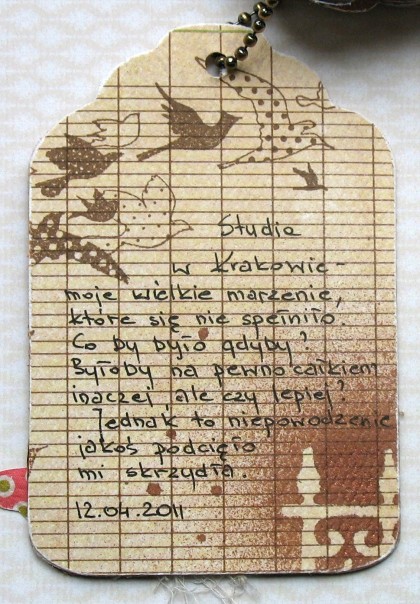 Studia
w Krakowie -
moje wielkie marzenie,
które się nie spełniło.
Co by było gdyby?
Byłoby na pewno całkiem
inaczej ale czy lepiej?
Jednak to niepowodzenie
jakoś podcięło
mi skrzydła.
12.04.2011